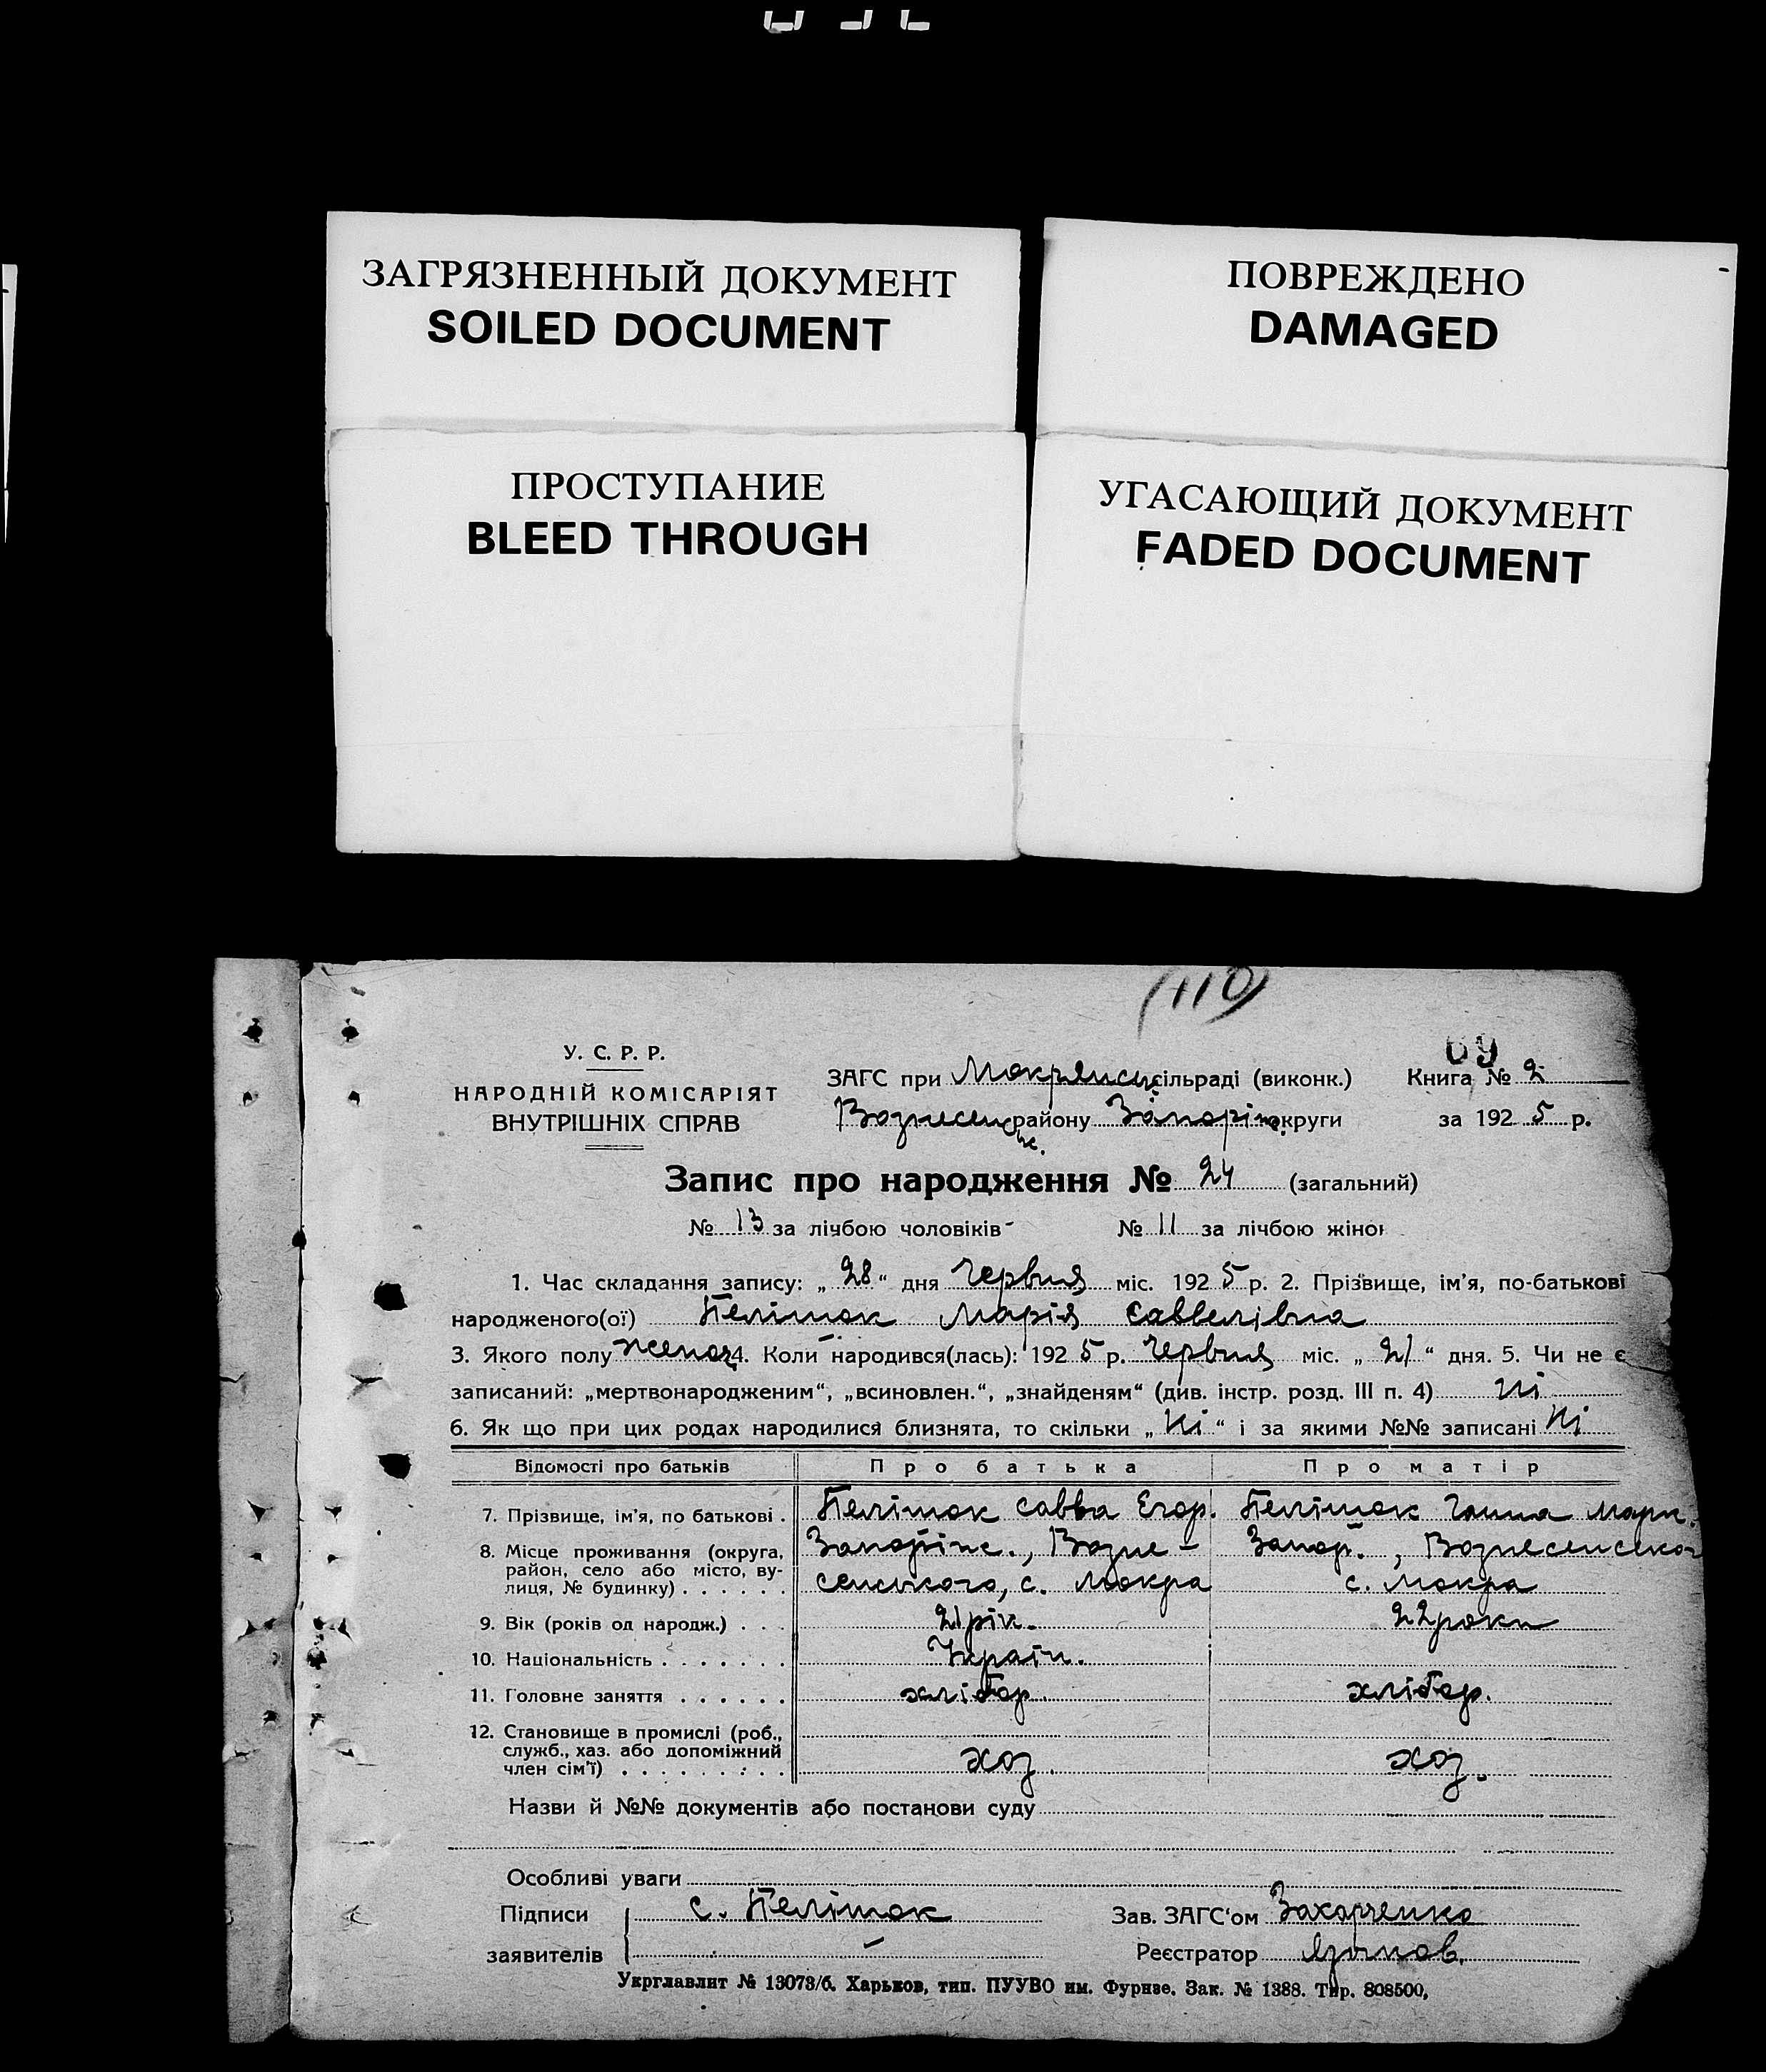 ЗАГРЯЗНЕННЫЙ ДОКУМЕНТ
SOILED DOCUMENT
ПОВРЕЖДЕНО
DAMAGED
ПРОСТУПАНИЕ
BLEED THROUGH
УГАСАЮЩИЙ ДОКУМЕНТ
FADED DOCUMENT
(110)
69
У. С. Р. Р.
НАРОДНІЙ КОМІСАРІЯТ
ВНУТРІШНІХ СПРАВ
ЗАГС при Мокрянськ сільраді (виконк.) Книга № 2
Вознесенське. району Запоріж. округи за 1925 р.
Запис про народження № 24 (загальний)
№ 13 за лічбою чоловіків - № 11 за лічбою жінок
1. Час складання запису: „28“ дня Червня міс. 1925 р. 2. Прізвище, ім'я, по-батькові
народженого(ої) Пелішок Марія Саввелівна
3. Якого полу женоч 4. Коли народився(лась): 1925 р. Червня міс. „21“ дня. 5. Чи не є
записаний: „мертвонародженим“, „всиновлен.“, „знайденям“ (див. інстр. розд. III п. 4) ні
6. Як що при цих родах народилися близнята, то скільки „Ні“ і за якими №№ записані Ні
Відомості про батьків Про батька Про матір
7. Прізвище, ім'я, по батькові . Пелішок Савва Егор. Пелішок Ганна Марк.
8. Місце проживання (округа, район, село або місто, вулиця, № будинку) . . . . . . Запоріж., Вознесенського, с. Мокра Запор., Вознесенського с. Мокра
9. Вік (років од народж.) . . . 21 рік. 22 роки
10. Національність . . . . . . . Україн.
11. Головне заняття . . . . . . хлібор. хлібор.
12. Становище в промислі (роб., служб., хаз. або допоміжний член сім'ї) . . . . . . . . . хоз. хоз.
Назви й №№ документів або постанови суду
Особливі уваги
Підписи заявителів С. Пелішок -
Зав. ЗАГС'ом Захарченко
Реєстратор
Укрглавлит № 13073/б. Харьков, тип. ПУУВО им. Фрунзе. Зак. № 1388. Тир. 808500,